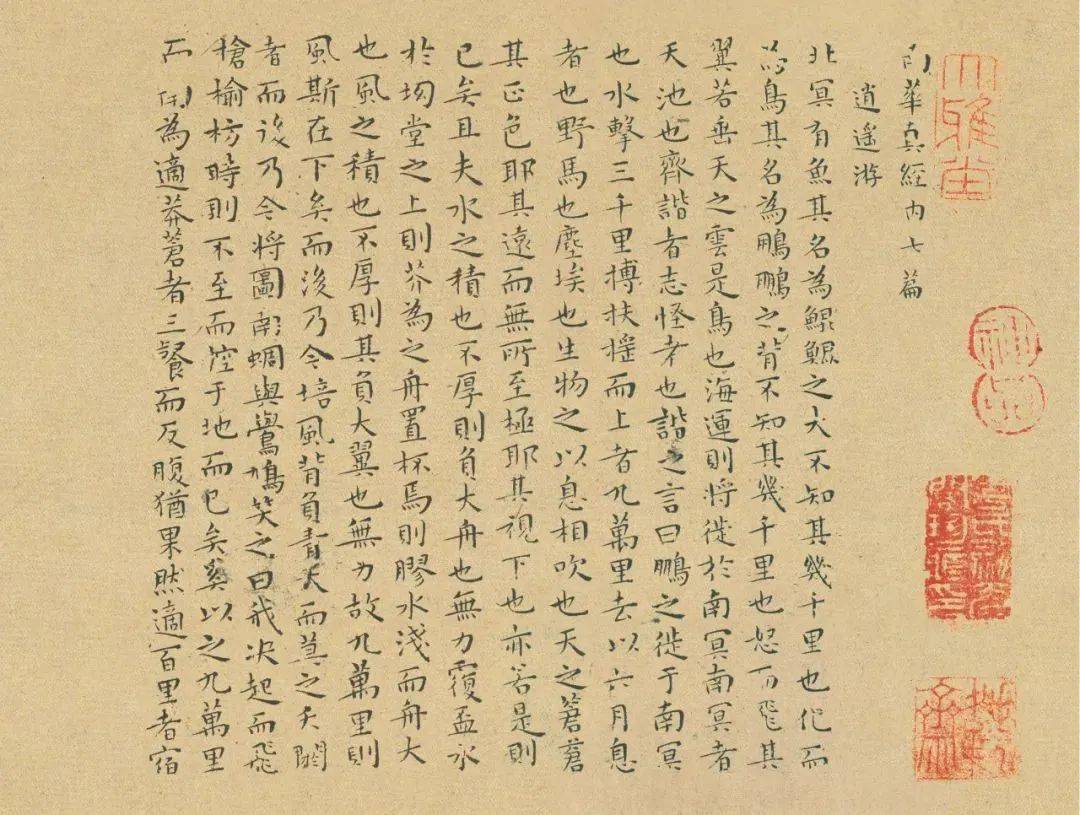 大雅堂
神品
南華真經内七篇
逍遥游
北冥有魚其名為鯤鯤之大不知其幾千里也化而
為鳥其名為鵬鵬之背不知其幾千里也怒而飛其
翼若垂天之雲是鳥也海運則將徙於南冥南冥者
天池也齊諧者志怪者也諧之言曰鵬之徙于南冥
也水擊三千里摶扶摇而上者九萬里去以六月息
者也野馬也塵埃也生物之以息相吹也天之蒼蒼
其正色耶其遠而無所至極耶其視下也亦若是則
已矣且夫水之積也不厚則負大舟也無力覆盃水
於坳堂之上則芥為之舟置杯焉則膠水淺而舟大
也風之積也不厚則其負大翼也無力故九萬里則
風斯在下矣而後乃今培風背負青天而莫之夭閼
者而後乃今將圖南蜩與鷽鳩笑之曰我決起而飛
槍榆枋時則不至而控于地而已矣奚以之九萬里
而南為適莽蒼者三餐而反腹猶果然適百里者宿